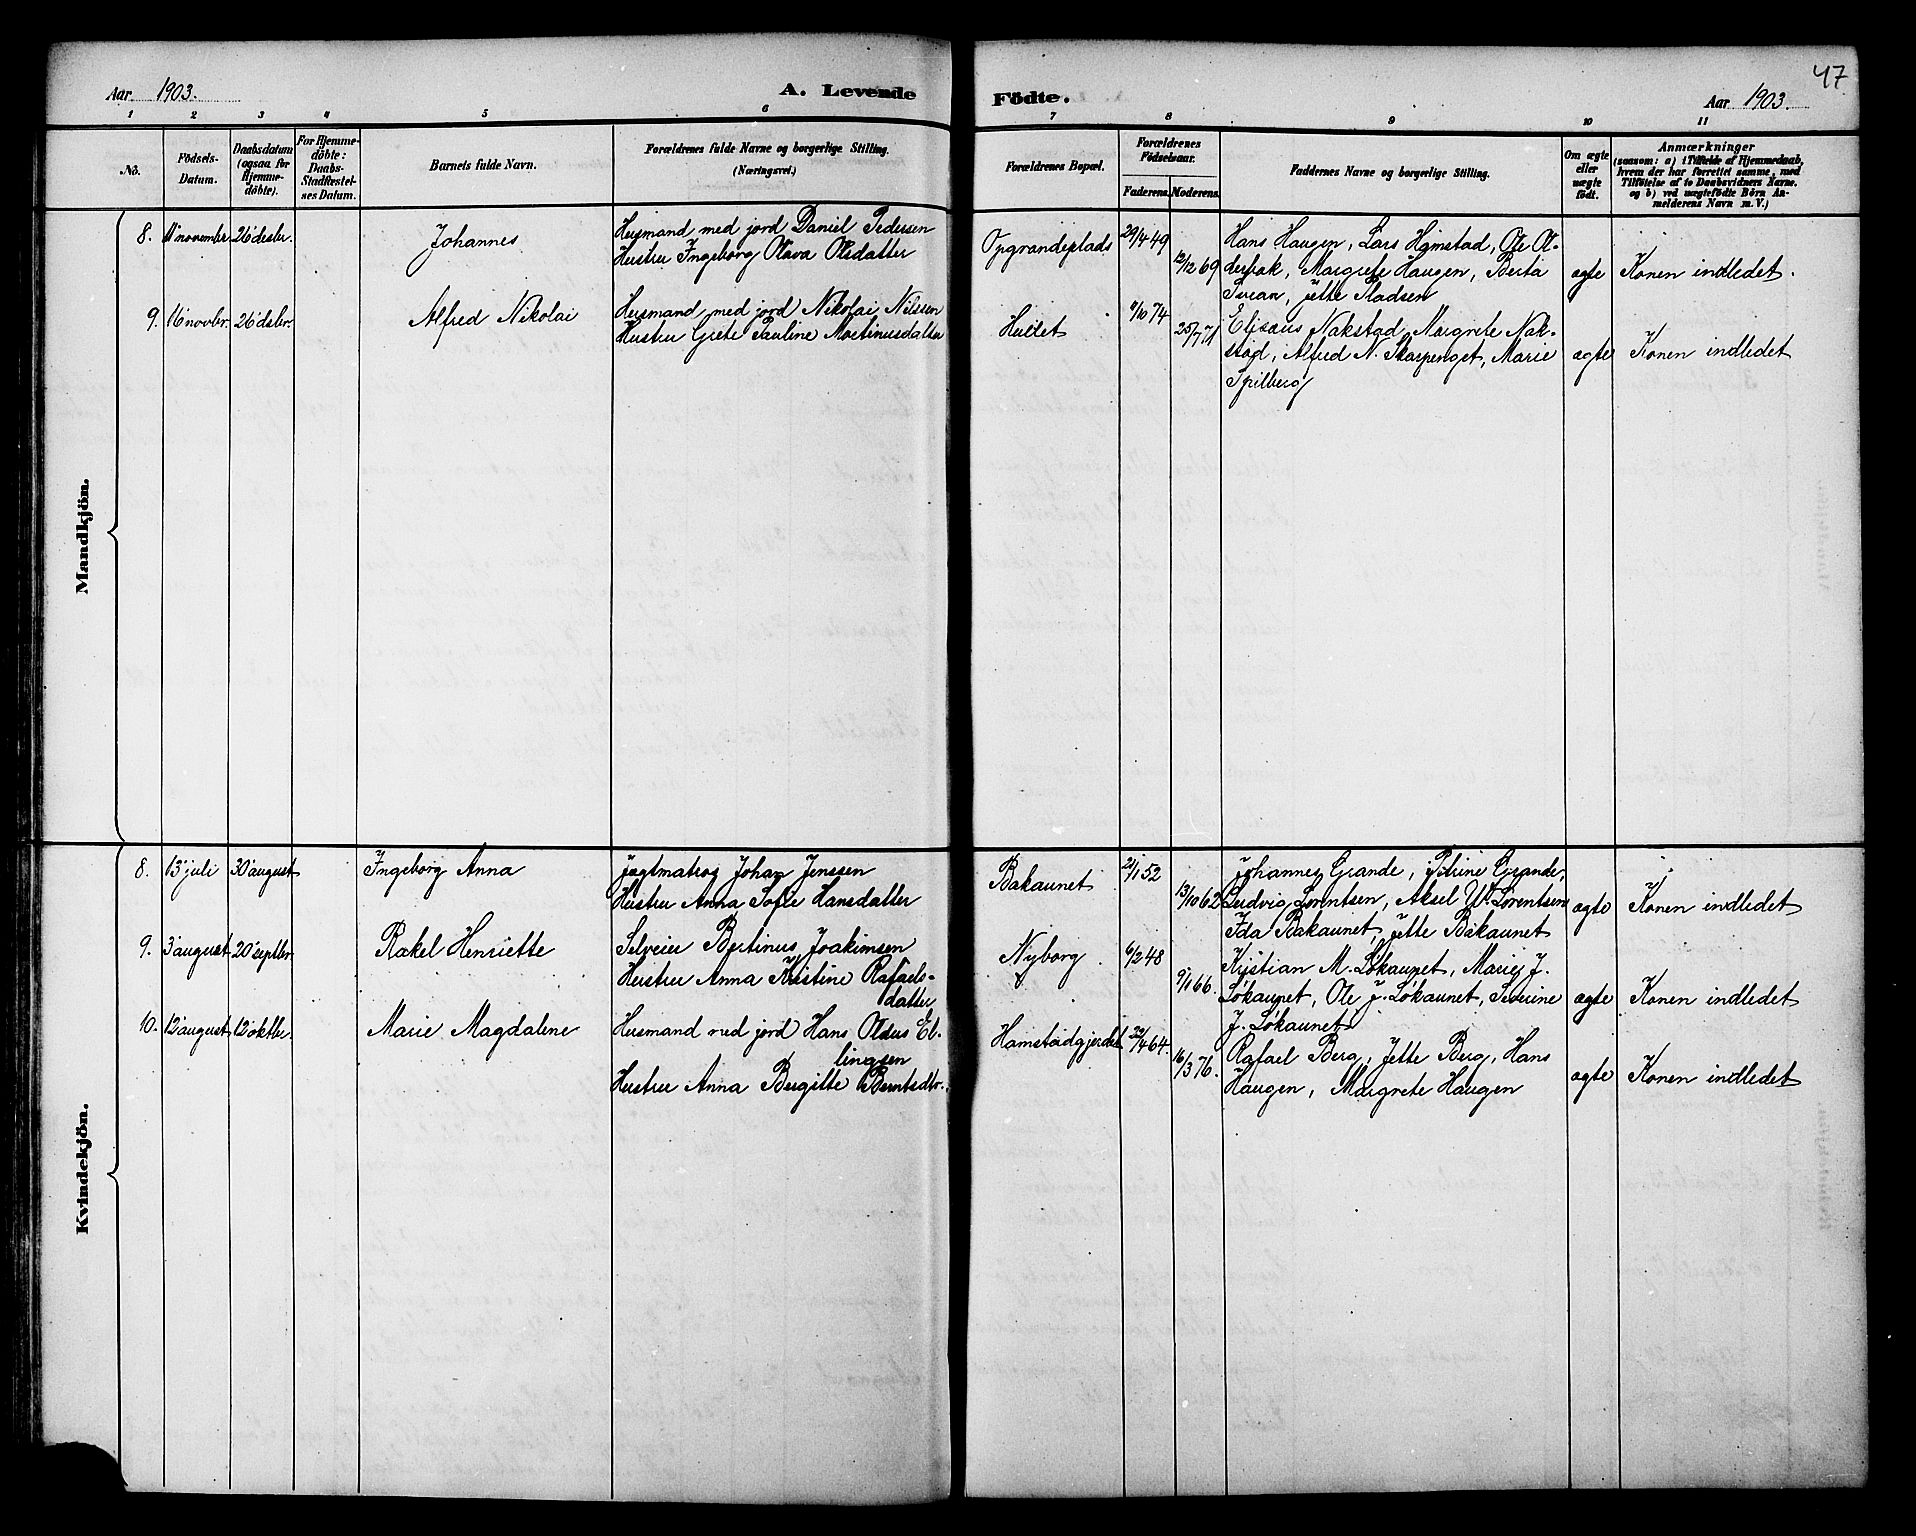 47
Aar 1903.
A. Levende
Födte.
Aar 1903.
1 2 3 4 5 6 7 8 9 10 11
No.
Födsels-
Datum.
Daabsdatum
(ogsaa for
Hjemme-
döbte).
For Hjemme-
döbte:
Daabs-
Stadfæstel-
ses Datum.
Barnets fulde Navn.
Forældrenes fulde Navne og borgerlige Stilling.
(Næringsvei.)
Forældrenes Bopæl.
Forældrenes
Födselsaar.
Faderens. Moderens.
Faddernes Navne og borgerlige Stilling.
Om ægte
eller
uægte
födt.
Anmærkninger
(saasom: a) i Tilfælde af Hjemmedaab,
hvem der har forrettet samme, med
Tilföielse af to Daabsvidners Navne,
og b) ved uægtefödte Börn An-
melderens Navn m. V.)
Mandkjön.
8. 11' november 26' desbr.
Johannes
Husmand med jord Daniel Pedersen
Hustru Ingeborg Olava Olsdatter
Opgrandeplads 29/4 49
12/12 69
Hans Haugen, Lars Hamstad, Ole Ol-
derbak, Margrete Haugen, Berta
Svean, Jette Pladsen
ægte
Konen indledet.
9. 16' novbr. 26' desbr.
Alfred Nikolai
Husmand med jord Nikolai Nilssen
Hustru Grete Pauline Mortinusdatter
Hullet
9/10 74
25/7 71
Elisæus Nakstad, Margrete Nak-
stad, Alfred N. Skarpenget, Marie
Spilberg
ægte
Konen indledet
Kvindekjön.
8. 13' juli 30' august
Ingeborg Anna
Jægtmatros Johan Jenssen
Hustru Anna Sofie Hansdatter
Bakaunet
21/1 52
13/10 62
Johannes Grande, Petrine Grande,
Ludvig Lorentsen, Aksel W. Lorentsen
Ida Bakaunet, Jette Bakaunet
ægte
Konen indledet
9. 3' august 20' septbr.
Rakel Henriette
Selveier Bertinus Joakimsen
Hustru Anna Kristine Rafaels-
datter
Nyborg
6/2 48
9/1 66.
Kristian M. Løkaunet, Marie J.
Løkaunet, Ole J. Løkaunet, Severine
J. Løkaunet
ægte
Konen indledet
10. 12' august 12' oktbr.
Marie Magdalene
Husmand med jord Hans Oldus El-
lingsen
Hustru Anna Bergitte Berntsdtr.
Hamstadgjerdet 22/4 64.
16/3 76.
Rafael Berg, Jette Berg, Hans
Haugen, Margrete Haugen
ægte
Konen indledet